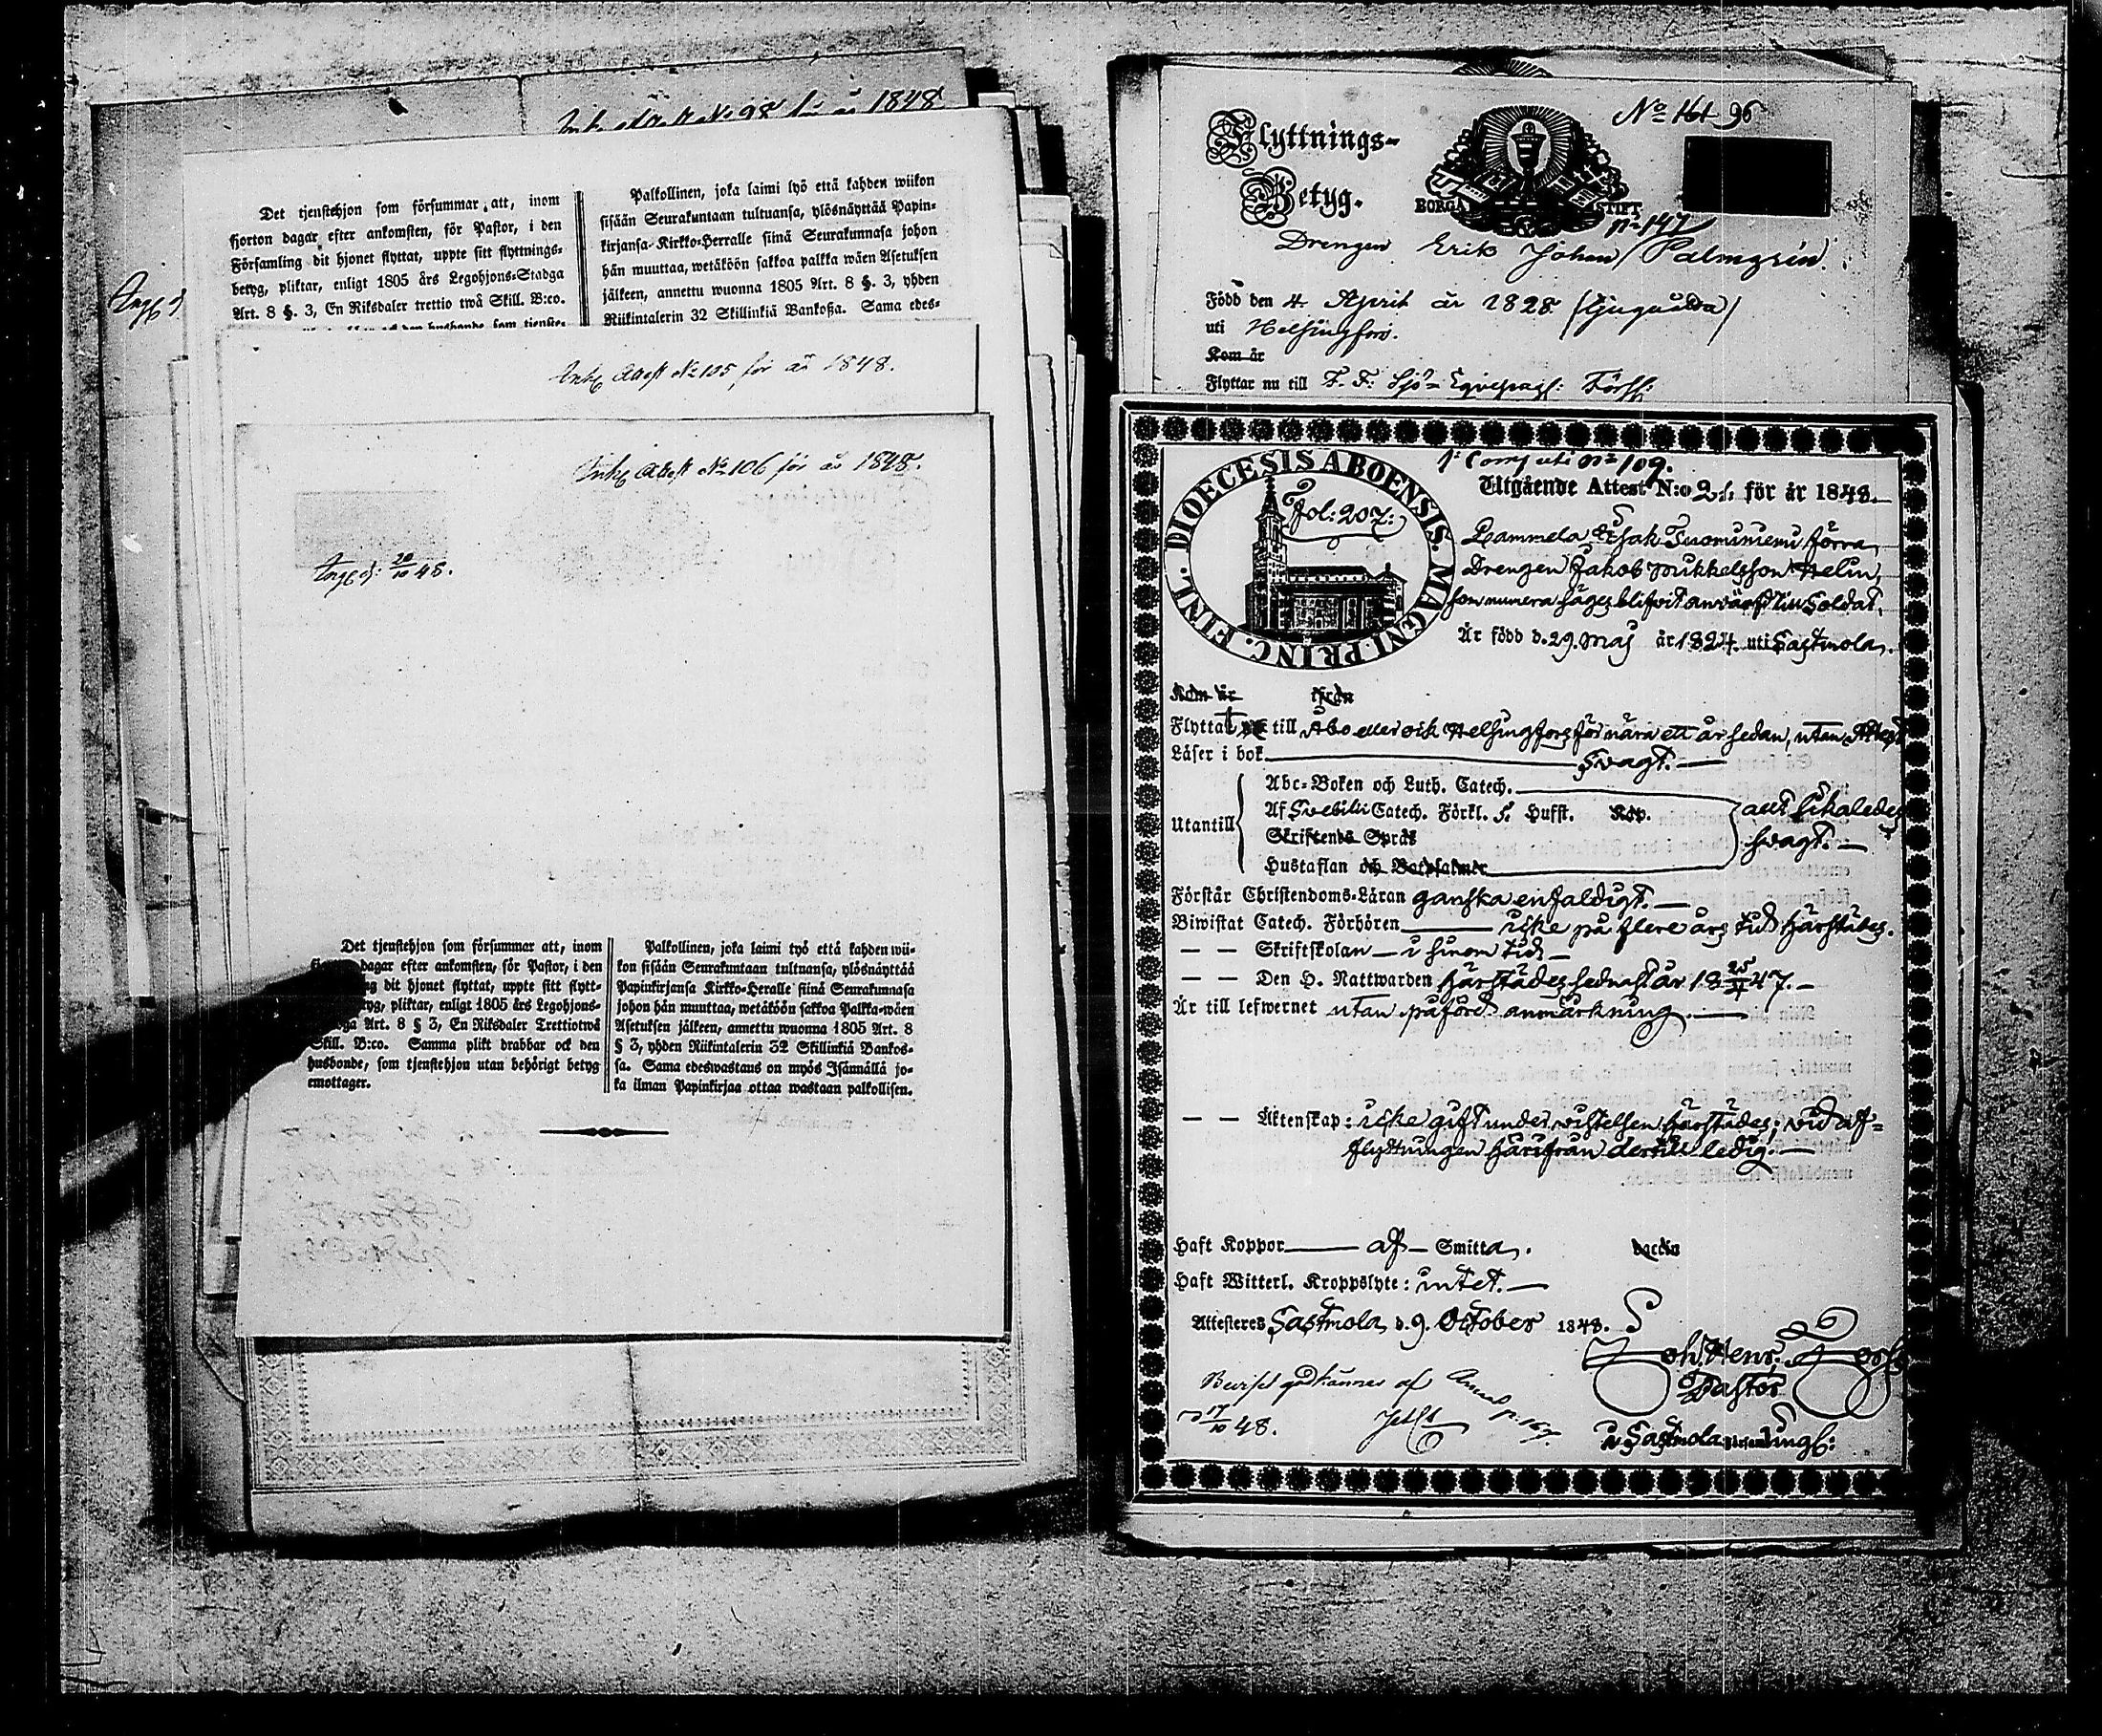 Ink. Attest No 98 för år 1848
Det tjenstehjon som försummar, att, inom
fjorton dagar efter ankomsten, för Pastor, i den
Församling dit hjonet flyttat, uppte sitt flyttnings-
betyg, pliktar, enligt 1805 års Legohjons-Stadga
Art. 8 §. 3, En Riksdaler trettio twå Skill. B:co.
Palkollinen, joka laimi lyö että kahden wiikon
sisään Seurakuntaan tultuansa, ylösnäyttää Papin-
kirjansa Kirkko-Herralle siinä Seurakunnasa johon
hän muuttaa, wetäköön sakkoa palkka wäen Asetuksen
jälkeen, annettu wuonna 1805 Art. 8 §. 3, yhden
Riikintalerin 32 Skillinkiä Bankoßa. Sama edes-
Ink. Attest No 105 för år 1848.
Ink. Attest No 106 för år 1848.
Ing. d: 20/10 48.
Det tjenstehjon som försummar att, inom
dagar efter ankomsten, för Pastor, i den
dit hjonet flyttat, uppte sitt flytt-
pliktar, enligt 1805 års Legohjons-
Art. 8 § 3, En Riksdaler Trettiotwå
Skill. B:co. Samma plikt drabbar ock den
husbonde, som tjenstehjon utan behörigt betyg
emottager.
Palkollinen, joka laimi lyö että kahden wii-
kon sisään Seurakuntaan tultuansa, ylösnäyttää
Papinkirjansa Kirkko-Heralle siinä Seurakunnasa
johon hän muuttaa, wetäköön sakkoa Palkka-wäen
Asetuksen jälkeen, annettu wuonna 1805 Art. 8
§ 3, yhden Riikintalerin 32 Skillinkiä Bankos-
sa. Sama edeswastaus on myös Isännällä jo-
ka ilman Papinkirjaa ottaa wastaan palkollisen.
No 161 96
Flyttnings-
Betyg.
BORGÅ STIFT
No 147
Drengen Erik Johan Palmgrén.
Född den 4 April år 1828
uti Helsingfors.
Kom år
Flyttar nu till F. F. Sjö-Equipag: Förs:
DIOECESIS ABOENSIS. MAGNI. PRINC. FINL.
Fol: 207:
No 109.
Utgående Attest N:o 21. för år 1848.
Rammela Isak Tuomuniemi förra
Drengen Jakob Mikkelsson Helin,
som numera säges blifvit anvärfd till Soldat,
Är född d. 29. Maj år 1824. uti Sastmola.
Kom år från
Flyttat till Åbo eller ock Helsingfors för nära ett år sedan, utan Attest
Läser i bok svagt.
Utantill
Abc-Boken och Luth. Catech.
Af Svebilii Catech. Förkl. 5. Hufst. Kap.
Skriftens Språk
Hustaflan och Botpsalmer
allt likaledes
svagt.
Förstår Christendoms-Läran ganska enfaldigt.
Biwistat Catech. Förhören icke på flere års tid härstädes.
— — Skriftskolan i sinom tid
— — Den H. Nattwarden härstädes sednast år 18 25/4 47.
Är till lefwernet utan påförd anmärkning.
— — Äktenskap: icke gift under vistelsen härstädes; vid af-
flyttningen härifrån dertill ledig.
Haft Koppor af Smitta.
Haft Witterl. Kroppslyte: intet.
Attesteras Sastmola d. 9. October 1848.
Joh. Henr.
Pastor
i Sastmola
Beviset godkännes af
d 17/10 48.